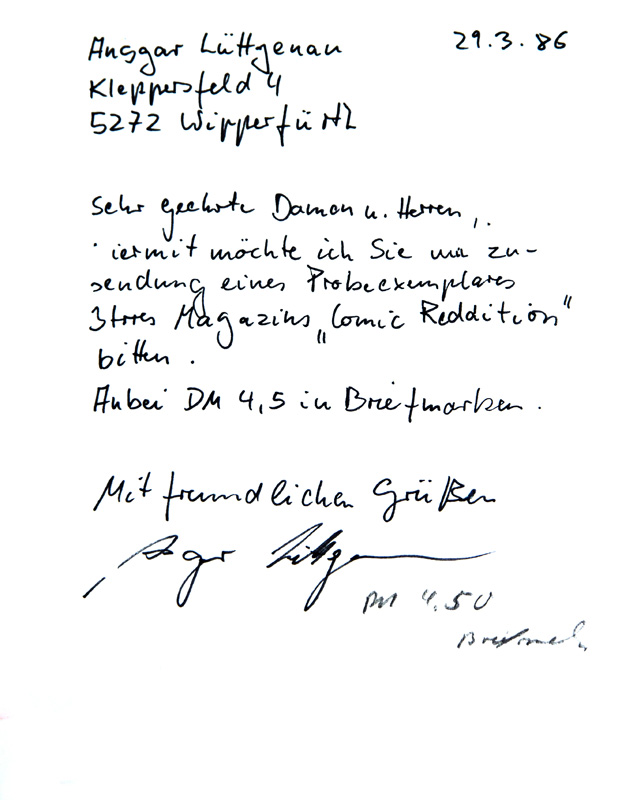 Ansgar Lüttgenau 29.3.86
Kleppersfeld 4
5272 Wipperfürth
Sehr geehrte Damen u. Herren,.
iermit möchte ich Sie um zu-
sendung eines Probeexemplares
Ihres Magazins „Comic Reddition"
bitten.
Anbei DM 4,5 in Briefmarken.
Mit freundlichen Grüßen
Ansgar Lüttgenau
DM 4.50